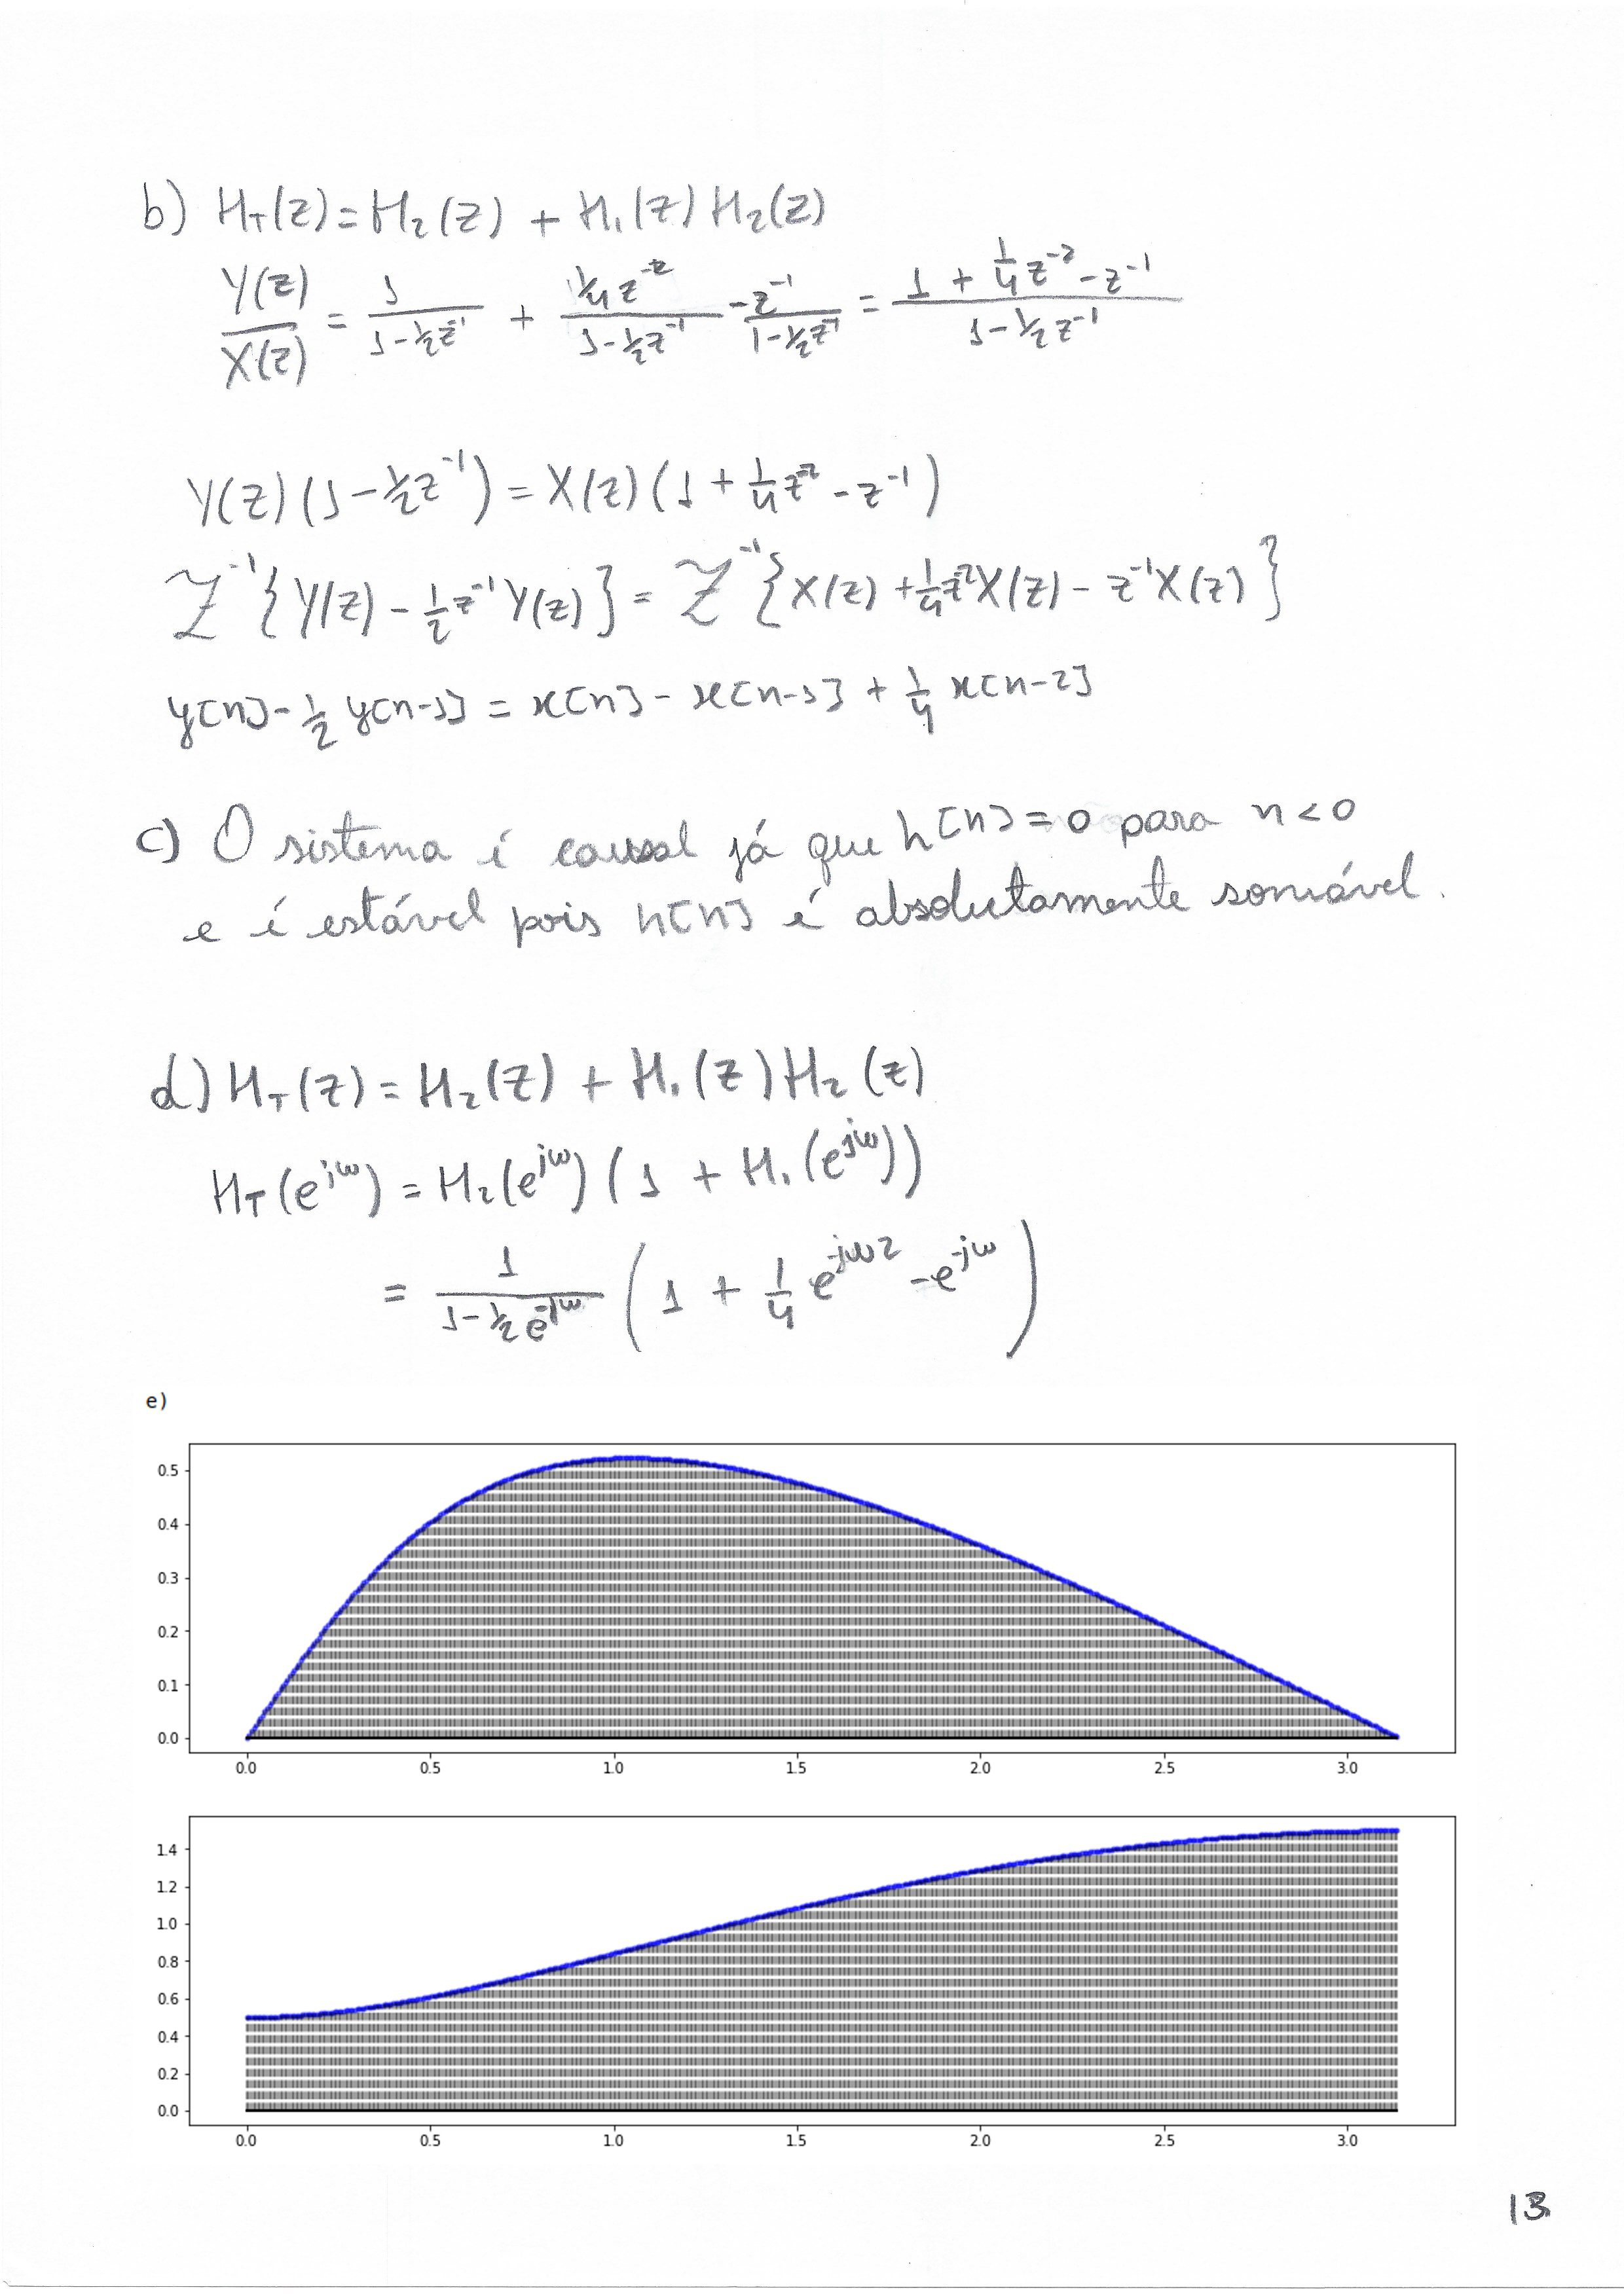 b) H_T(z) = H_2(z) + H_1(z) H_2(z)
Y(z)/X(z) = 1/(1-½z^-1) + ¼z^-2/(1-½z^-1) - z^-1/(1-½z^-1) = (1 + ¼z^-2 - z^-1)/(1-½z^-1)
Y(z)(1-½z^-1) = X(z)(1 + ¼z^-2 - z^-1)
Z^-1{Y(z) - ½z^-1Y(z)} = Z^-1{X(z) + ¼z^-2X(z) - z^-1X(z)}
y[n] - ½ y[n-1] = x[n] - x[n-1] + ¼ x[n-2]
c) O sistema é causal já que h[n] = 0 para n < 0
e é estável pois h[n] é absolutamente somável.
d) H_T(z) = H_2(z) + H_1(z) H_2(z)
H_T(e^jω) = H_2(e^jω)(1 + H_1(e^jω))
= 1/(1-½e^-jω) (1 + ¼ e^-jω2 - e^-jω)
e)
0.5
0.4
0.3
0.2
0.1
0.0
0.0 0.5 1.0 1.5 2.0 2.5 3.0
1.4
1.2
1.0
0.8
0.6
0.4
0.2
0.0
0.0 0.5 1.0 1.5 2.0 2.5 3.0
13